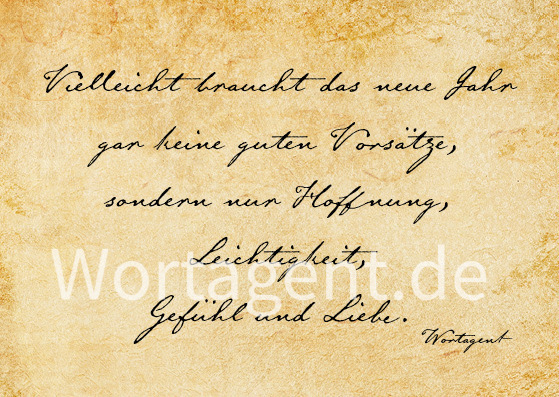 Vielleicht braucht das neue Jahr
gar keine guten Vorsätze,
sondern nur Hoffnung,
Leichtigkeit,
Wortagent.de
Gefühl und Liebe.
Wortagent